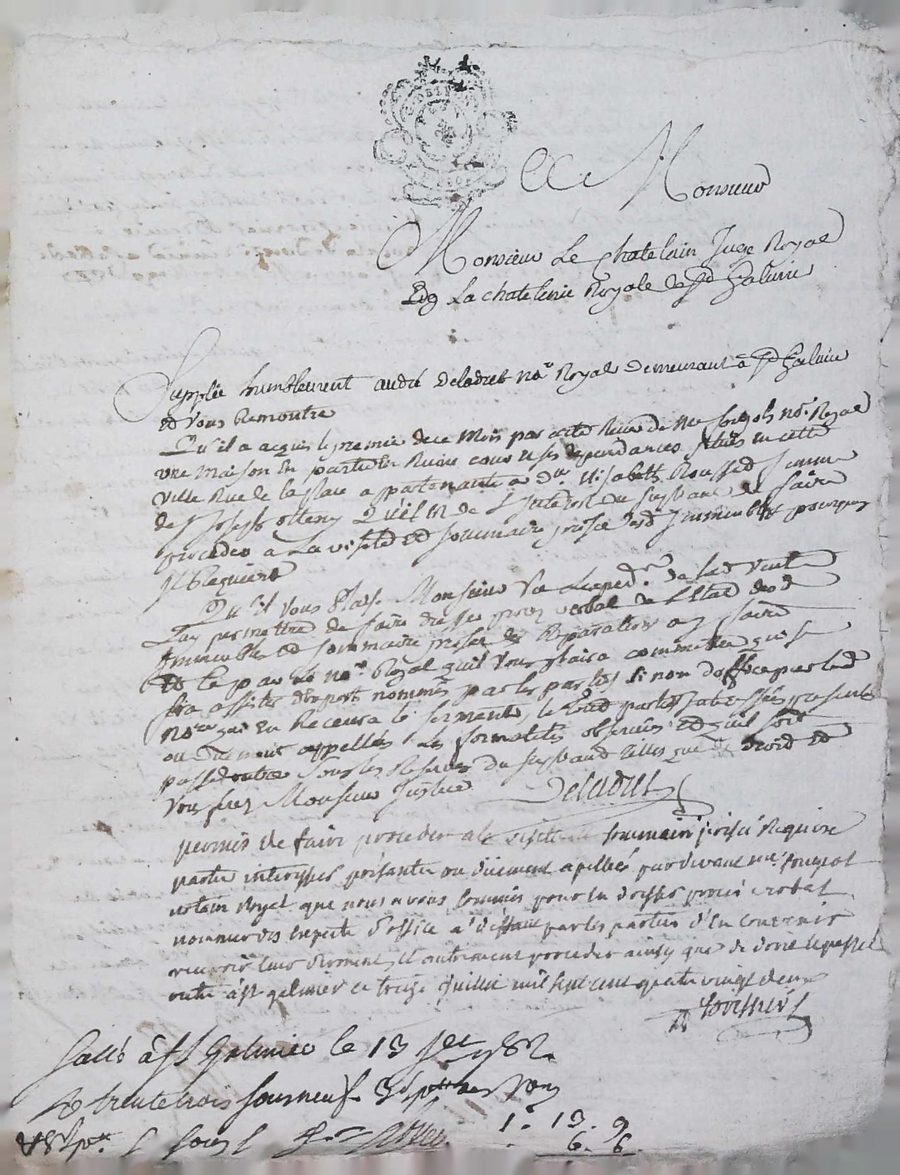 A Monsieur
Monsieur Le Chatelain Juge Royal
En La chatelenie Royale de St Galmier
Supplie humblement andré Deladret no.re Royal Demeurant à St Galmier
Et vous Remontre
Qu'il a acquis le premier de ce Mois par acte Recu de no.re Royal
une maison En partie En Ruine cour et ses dependances situés En cette
ville Rue de la place appartenante a d.lle Elisabeth Rousset femme
de S.r Joseph qu'il est de L'interest du supliant de faire
proceder a La visite Et sommaire prisé desd. Immeubles pourquoy
Il Requiert
Qu'il vous Plaise Monsieur Vu de lad. vente
Luy permettre de faire dresser procez verbal de L'Etat desd.
Immeubles Et sommaire prisée des Reparations a y faire
Et ce par le no.re Royal qu'il vous plaira commettre qui se
fera assister d'Experts nommés par les parties si non d'office par led.
No.re qui En Recevra le serment, le tout parties Interessées presentes
ou duement appellées Les formalités observées Et qu'il soit
passé outre sous les Reserves du supliant telles que de droit Et
vous ferez Monsieur Justice
Deladret
permis de faire proceder a la visite et sommaire prisée Requise
partie interessés présentes ou düement apellées pardevant m.e
notaire Royal que nous avons commis pour en dresser procès verbal
nommer des experts d'office a deffaut par les parties d'En convenir
recevoir leur serment, et autrement proceder ainsy que de droit
outre a st galmier ce treize Juillet mil sept cent quatre vingt deux
Scellé à St Galmier le 13 Jet 1782.
R trente trois sous neuf
1. 13. 9
6. 6